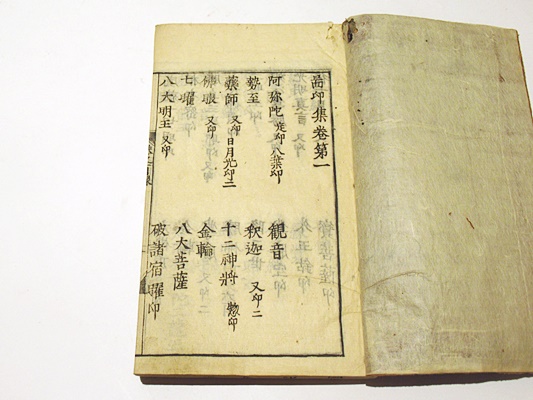 印集卷第一
阿弥陀 定印八葉印 観音
勢至 釈迦 又印二
藥師 又印日月光印二 十二神将 惣印
佛眼 又印 金輪
七曜 八大菩薩
八大明王 又印 破諸宿曜印